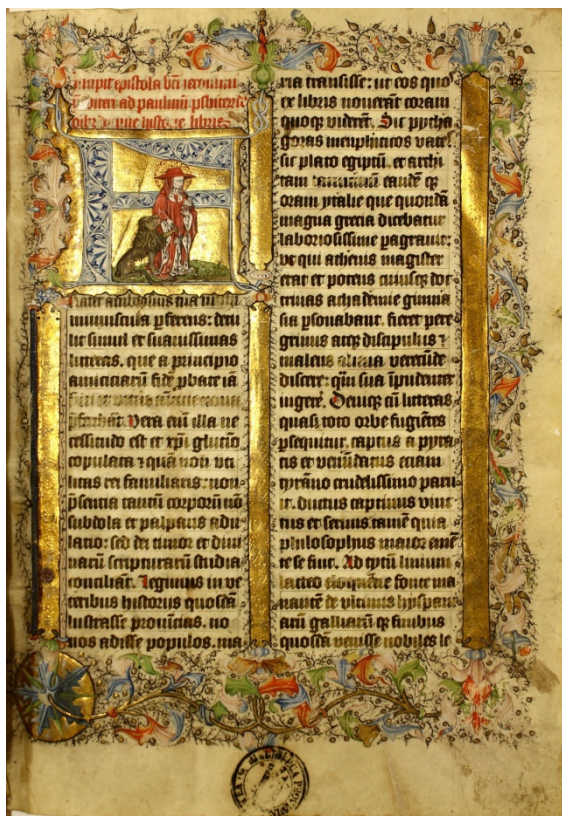 Incipit epistola bti ieronimi
ad paulinū
libris
Frater ambrosius tua michi
munuscula pferens: detu
lit simul et suauissimas
litteras. que a principio
amiciciarū fidē pbate iā
pferebāt. Vera eni illa ne
cessitudo est et xpi glutīo
copulata ⁊ quā non vti
litas rei familiaris: non
psentia tantū corporū nō
subdola et palpans adu
latio: sed dei timor et diui
narū scripturarū studia
conciliāt. Legimus in ve
teribus historijs quosdā
lustrasse prouīcias. no
uos adisse populos. ma
ria transisse: ut eos quos
ex libris nouerāt coram
quoqꝫ viderēt. Sic pytha
goras memphiticos vates
sic plato egiptū. et archi
tam eandē qꝫ
oram ytalie que quondā
magna grecia dicebatur
laboriosissime pagrauit:
vt qui athenis magister
erat et potens cuiusqꝫ doc
trinas achademie gimna
sia psonabant. fieret pere
grinus atqꝫ discipulus ⁊
malens aliena verecūde
discere: qm sua īpudenter
ingere. Deniqꝫ cū litteras
quasi toto orbe fugiētes
psequitur. captus a pyra
tis et venūdatus eciam
tyrāno crudelissimo parui
it. ductus captiuus vinc
tus et seruus tamē quia
philosophus maior emē
te se fuit. Ad tytū liuium
lacteo eloquētie fonte ma
nantē de vltimis hyspani
arū galliarū qꝫ finibus
quosdā venisse nobiles le